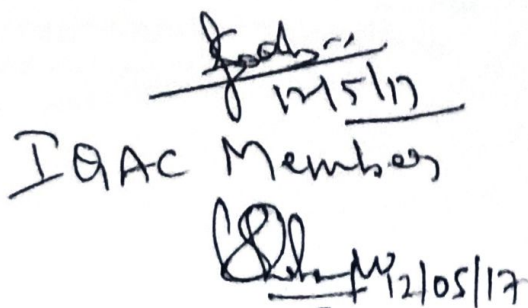 12/5/17
IQAC Member
12/05/17